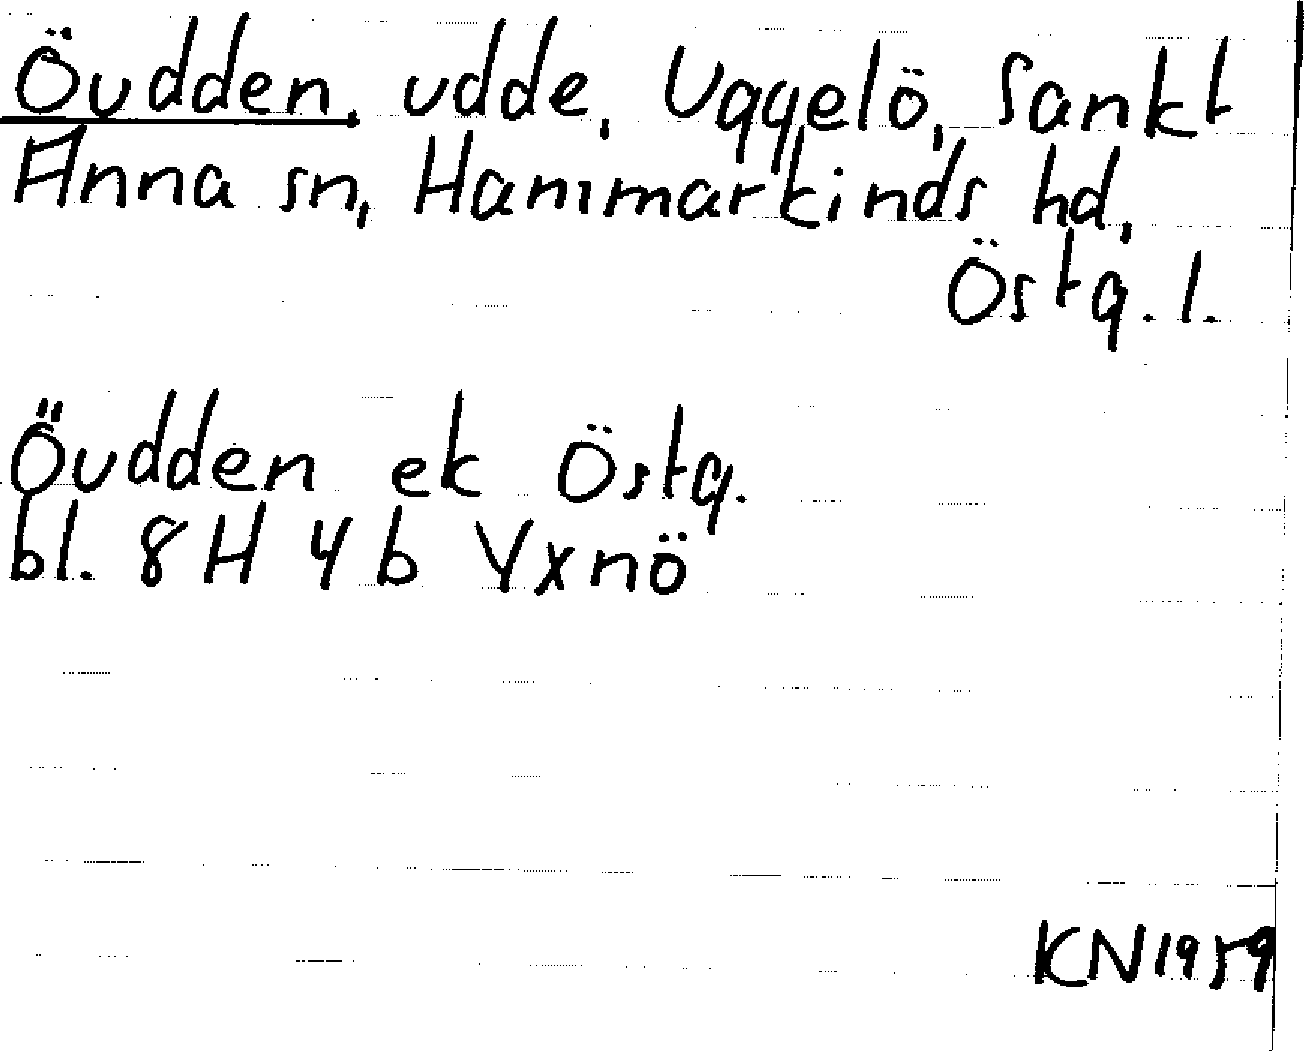 Öudden, udde, Uggelö, Sankt
Anna sn, Hammarkinds hd,
Östg. l.
Öudden ek Östg.
bl. 8H 4b Yxnö
KN1959